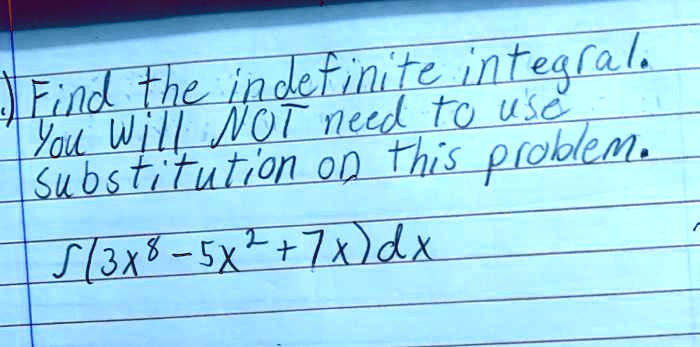 .) Find the indefinite integral.
You will NOT need to use
substitution on this problem.
∫(3x⁸ - 5x² + 7x)dx